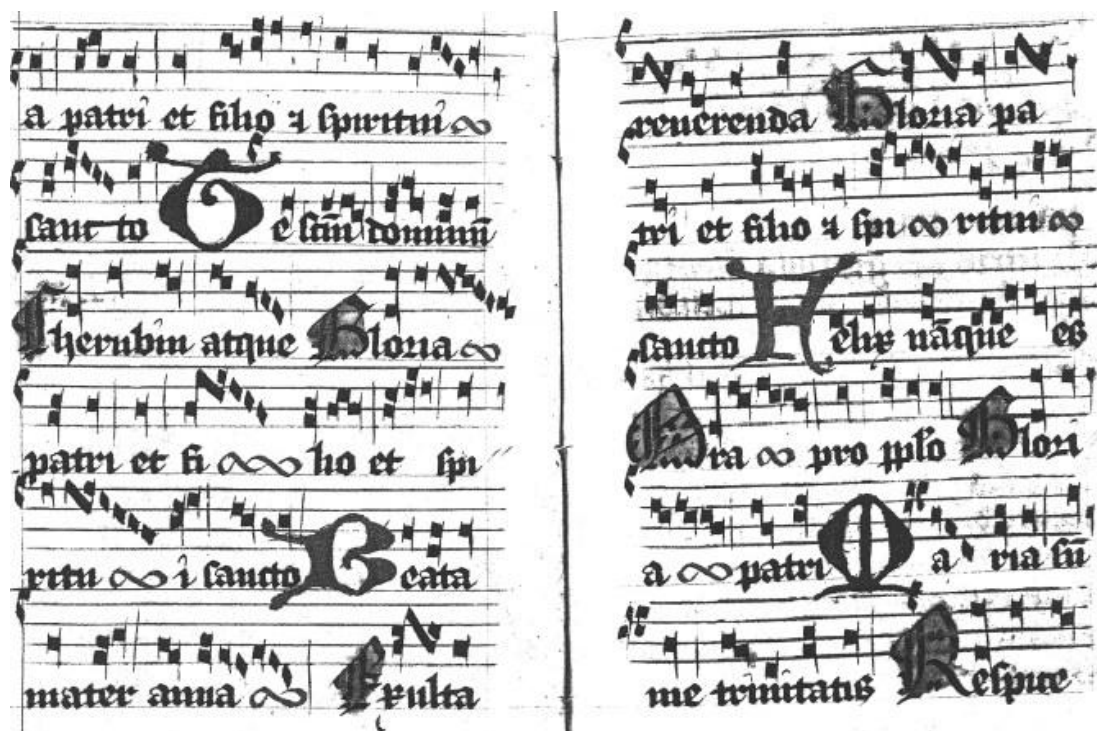 a patri et filio ⁊ spiritui
sanc to Te scm̄ dominū
Cherubin atque Gloria
patri et fi lio et spi
ritu i sancto Beata
mater anna Exulta
reuerenda Gloria pa
tri et filio ⁊ spi ritui
sancto Felix nāque es
Ora pro pplo Glori
a patri Maria sū
me trinitatis Respice